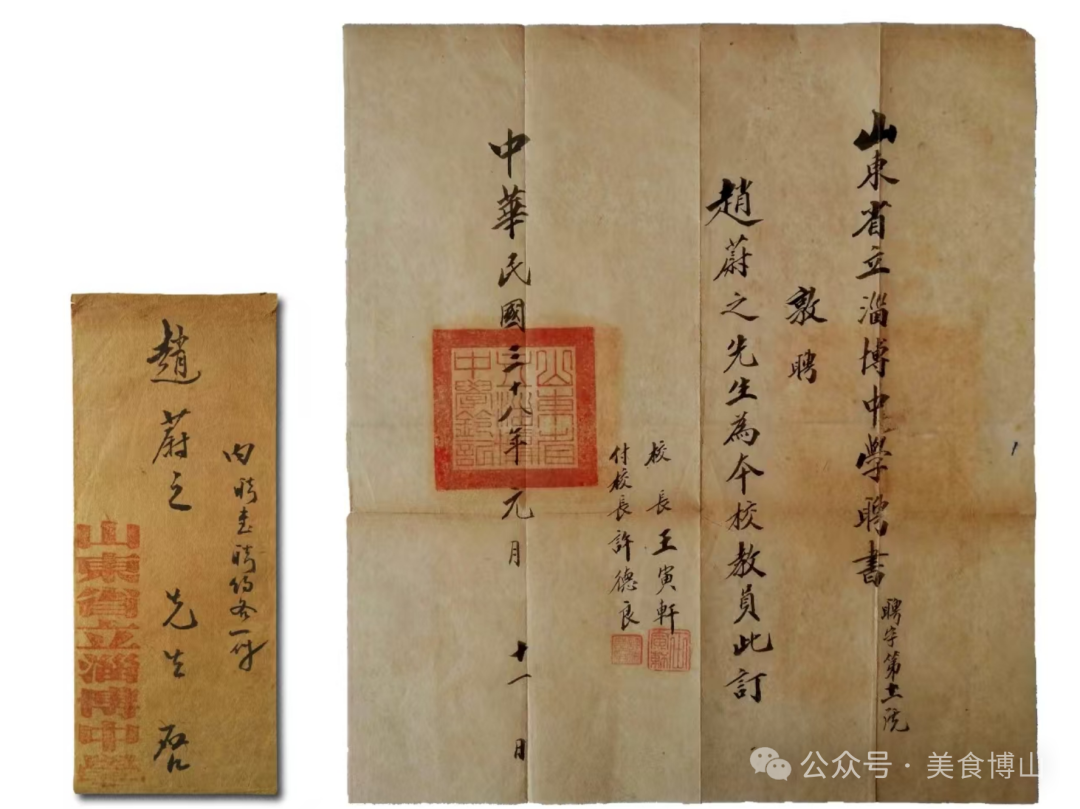 山東省立淄博中學聘書
聘字第十一號
敦聘
趙蔚之先生為本校教員此訂
校長 王寅軒
付校長 許德良
中華民國三十八年元月十一日
山東省立淄博中學鈐記
內聘書聘約各一册
趙蔚之先生啓
山東省立淄博中學
公众号·美食博山